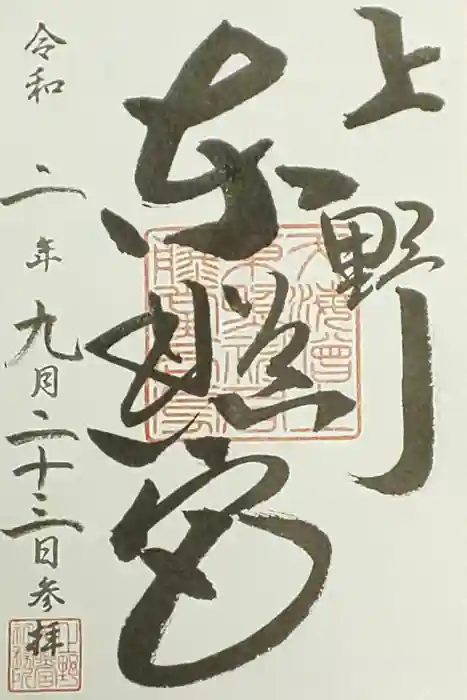 上野
東照宮
令和二年九月二十三日参拝